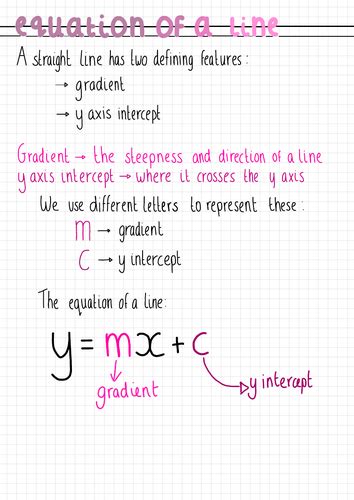 equation of a line
A straight line has two defining features:
→ gradient
→ y axis intercept
Gradient → the steepness and direction of a line
y axis intercept → where it crosses the y axis
We use different letters to represent these:
m → gradient
c → y intercept
The equation of a line:
y = mx + c
gradient
y intercept